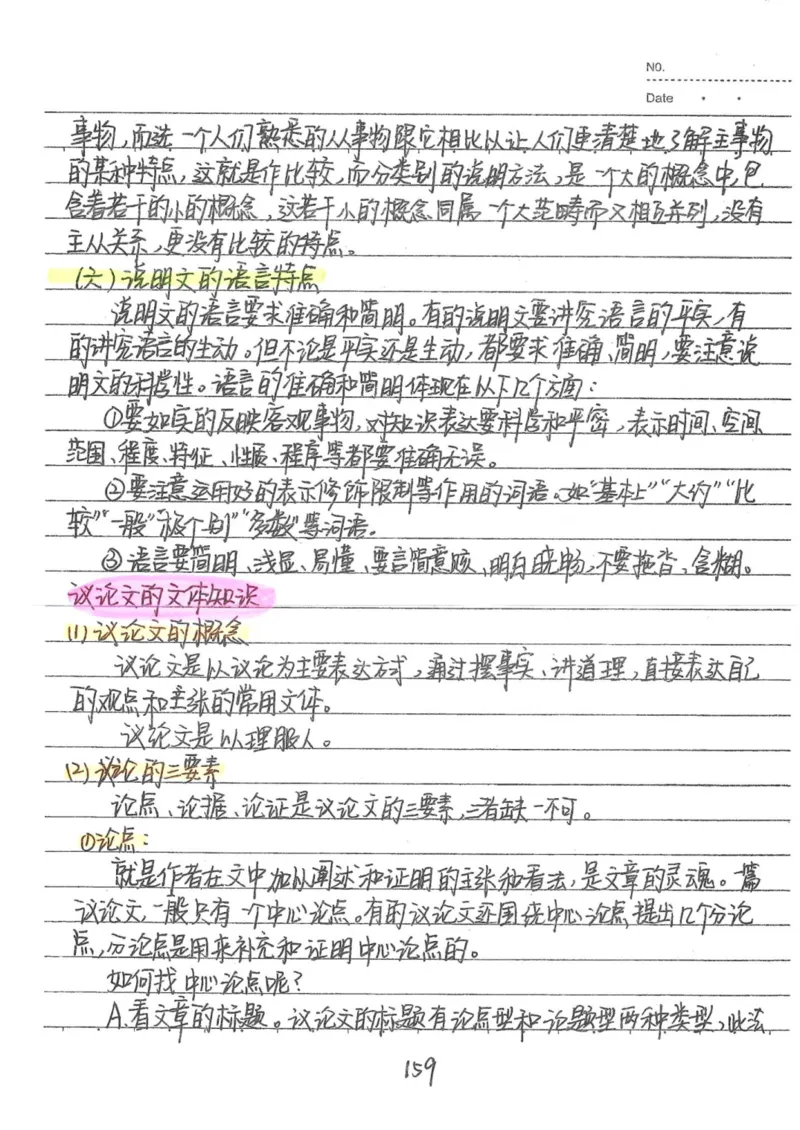 NO.
Date · ·
事物,而选一个人们熟悉的从事物跟它相比以让人们更清楚地了解主事物
的某种特点,这就是作比较,而分类别的说明方法,是一个大的概念中,包
含着若干的小的概念,这若干小的概念同属一个大范畴而又相互并列,没有
主从关系,更没有比较的特点。
(六)说明文的语言特点
说明文的语言要求准确和简明。有的说明文要讲究语言的平实,有
的讲究语言的生动。但不论是平实还是生动,都要求准确、简明,要注意说
明文的科学性。语言的准确和简明体现在以下几个方面:
①要如实的反映客观事物,对知识表达要科学和严密,表示时间、空间、
范围、程度、特征、性质、程序等都要准确无误。
②要注意运用好的表示修饰限制等作用的词语。如“基本上”“大约”“比
较”“一般”“极个别”“多数”等词语。
③语言要简明、浅显、易懂、要言简意赅、明白晓畅,不要拖沓,含糊。
议论文的文体知识
(1)议论文的概念
议论文是以议论为主要表达方式,通过摆事实、讲道理,直接表达自己
的观点和主张的常用文体。
议论文是以理服人。
(2)议论的三要素
论点、论据、论证是议论文的三要素,三者缺一不可。
①论点:
就是作者在文中加以阐述和证明的主张和看法,是文章的灵魂。一篇
议论文,一般只有一个中心论点。有的议论文还围绕中心论点提出几个分论
点,分论点是用来补充和证明中心论点的。
如何找中心论点呢?
A.看文章的标题。议论文的标题有论点型和论题型两种类型,此法
159